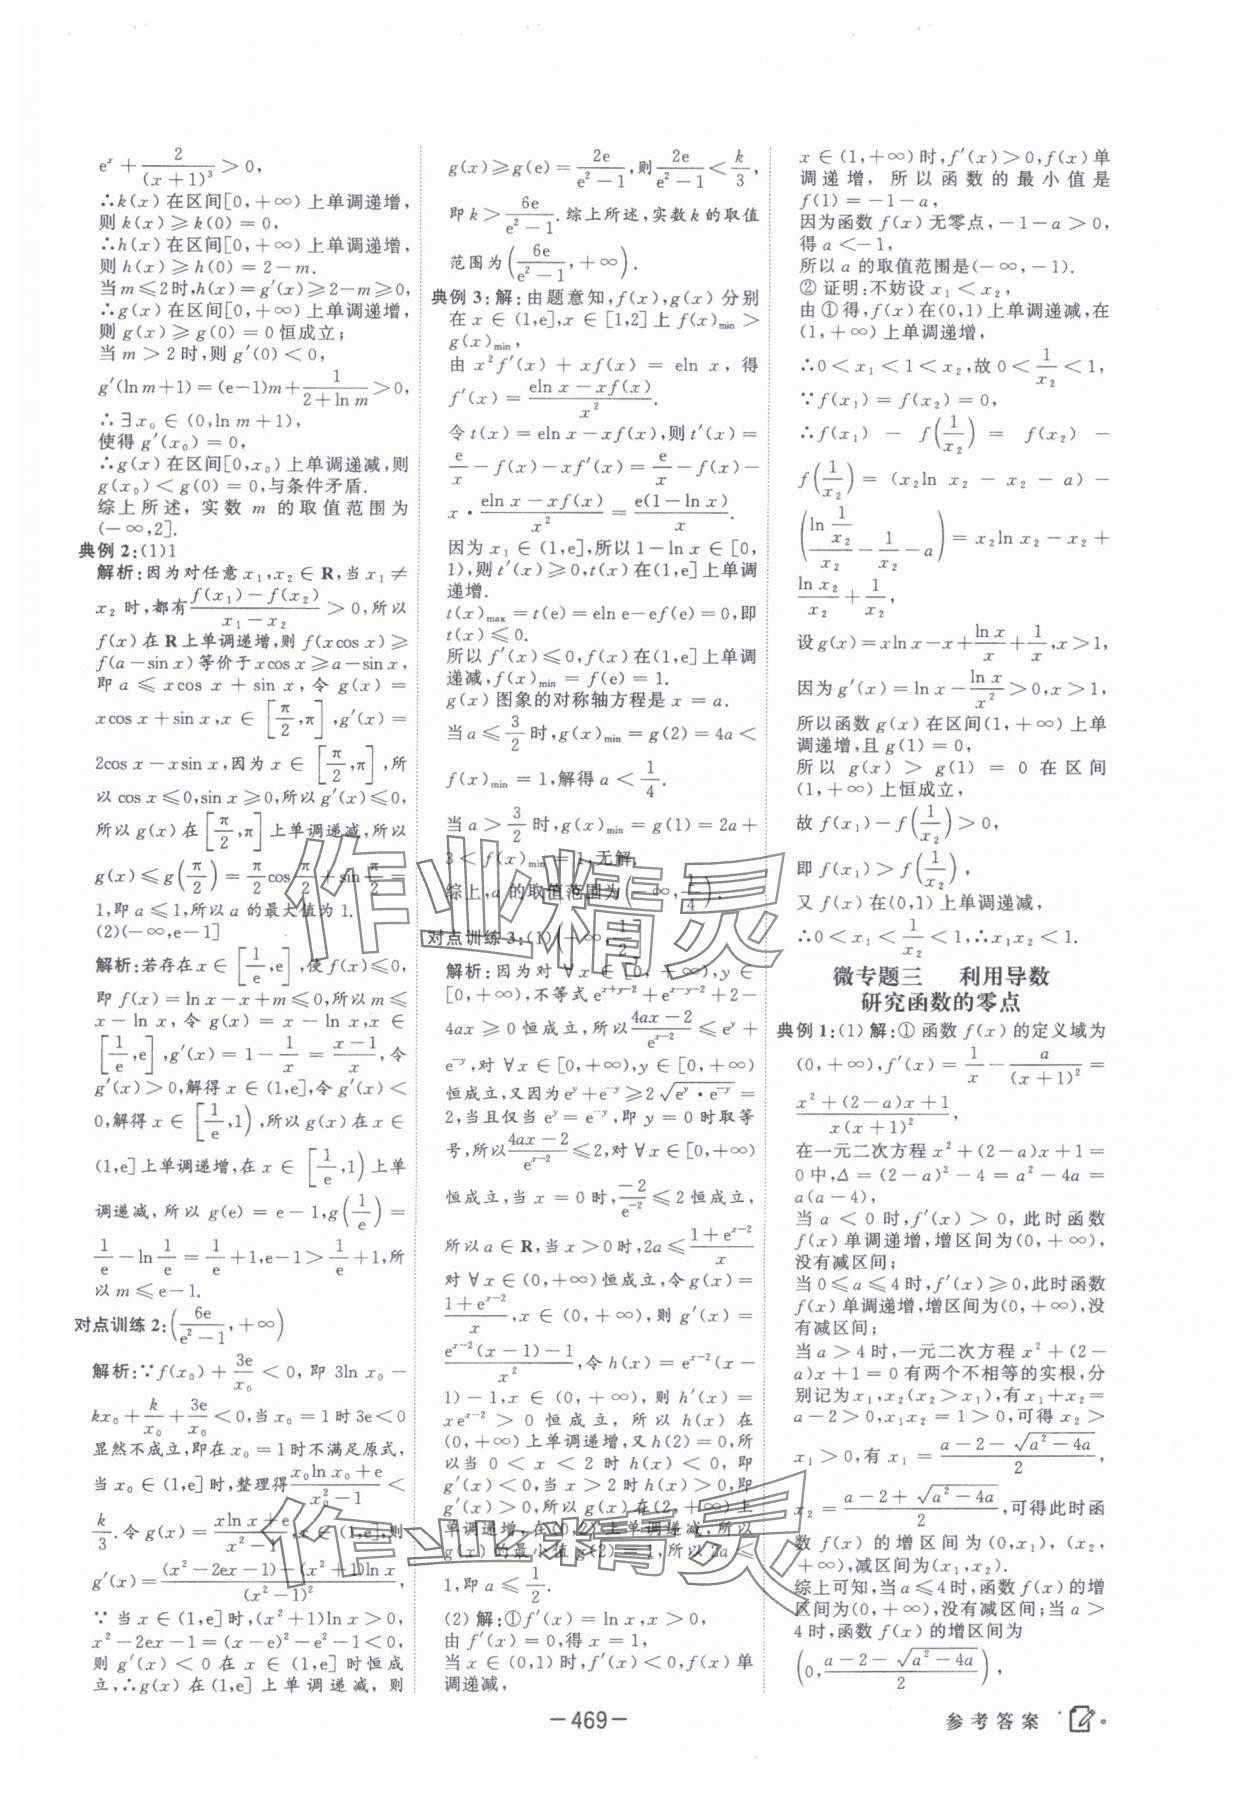 e^x + 2/(x+1)^3 > 0,
∴k(x)在区间[0,+∞)上单调递增,
则k(x)≥k(0)=0,
∴h(x)在区间[0,+∞)上单调递增,
则h(x)≥h(0)=2-m.
当m≤2时,h(x)=g′(x)≥2-m≥0,
∴g(x)在区间[0,+∞)上单调递增,
则g(x)≥g(0)=0恒成立;
当m>2时,则g′(0)<0,
g′(ln m+1)=(e-1)m+1/(2+ln m)>0,
∴∃x₀∈(0,ln m+1),
使得g′(x₀)=0,
∴g(x)在区间[0,x₀)上单调递减,则
g(x₀)<g(0)=0,与条件矛盾.
综上所述,实数m的取值范围为
(-∞,2].
典例2:(1)1
解析:因为对任意x₁,x₂∈R,当x₁≠
x₂时,都有(f(x₁)-f(x₂))/(x₁-x₂)>0,所以
f(x)在R上单调递增,则f(xcos x)≥
f(a-sin x)等价于xcos x≥a-sin x,
即a≤xcos x+sin x,令g(x)=
xcos x+sin x,x∈[π/2,π],g′(x)=
2cos x-xsin x,因为x∈[π/2,π],所
以cos x≤0,sin x≥0,所以g′(x)≤0,
所以g(x)在[π/2,π]上单调递减,所以
g(x)≤g(π/2)=π/2cos π/2+sin π/2=
1,即a≤1,所以a的最大值为1.
(2)(-∞,e-1]
解析:若存在x∈[1/e,e],使f(x)≥0,
即f(x)=ln x-x+m≥0,则m≤
x-ln x,令g(x)=x-ln x,x∈
[1/e,e],g′(x)=1-1/x=(x-1)/x,令
g′(x)>0,解得x∈(1,e],令g′(x)<
0,解得x∈[1/e,1),所以g(x)在x∈
(1,e]上单调递增,在x∈[1/e,1)上单
调递减,所以g(e)=e-1,g(1/e)=
1/e-ln 1/e=1/e+1,e-1>1/e+1,所
以m≤e-1.
对点训练2:(6e/(e²-1),+∞)
解析:∵f(x₀)+3e/x₀<0,即3ln x₀-
kx₀+k/x₀+3e/x₀<0,当x₀=1时3e<0
显然不成立,即在x₀=1时不满足原式,
当x₀∈(1,e]时,整理得(x₀ln x₀+e)/(x₀²-1)<
k/3.令g(x)=(xln x+e)/(x²-1),x∈(1,e],则
g′(x)=((x²-2ex-1)-(x²+1)ln x)/(x²-1)²,
∵当x∈(1,e]时,(x²+1)ln x>0,
x²-2ex-1=(x-e)²-e²-1<0,
则g′(x)<0在x∈(1,e]时恒成
立,∴g(x)在(1,e]上单调递减,则
g(x)≥g(e)=2e/(e²-1),则2e/(e²-1)<k/3,
即k>6e/(e²-1).综上所述,实数k的取值
范围为(6e/(e²-1),+∞).
典例3:解:由题意知,f(x),g(x)分别
在x∈(1,e],x∈[1,2]上f(x)min>
g(x)min,
由x²f′(x)+xf(x)=eln x,得
f′(x)=(eln x-xf(x))/x².
令t(x)=eln x-xf(x),则t′(x)=
e/x-f(x)-xf′(x)=e/x-f(x)-
x·(eln x-xf(x))/x²=e(1-ln x)/x.
因为x₁∈(1,e],所以1-ln x∈[0,
1),则t′(x)≥0,t(x)在(1,e]上单调
递增.
t(x)max=t(e)=eln e-ef(e)=0,即
t(x)≤0.
所以f′(x)≤0,f(x)在(1,e]上单调
递减,f(x)min=f(e)=1.
g(x)图象的对称轴方程是x=a.
当a≤3/2时,g(x)min=g(2)=4a<
f(x)min=1,解得a<1/4.
当a>3/2时,g(x)min=g(1)=2a+
3<f(x)min=1,无解,
综上,a的取值范围为(-∞,1/4).
对点训练3:(1)(-∞,1/2]
解析:因为对∀x∈[0,+∞),y∈
[0,+∞),不等式e^(x+y-2)+e^(x-y-2)+2-
4ax≥0恒成立,所以(4ax-2)/e^(x-2)≤e^y+
e^(-y),对∀x∈[0,+∞),y∈[0,+∞)
恒成立,又因为e^y+e^(-y)≥2√(e^y·e^(-y))=
2,当且仅当e^y=e^(-y),即y=0时取等
号,所以(4ax-2)/e^(x-2)≤2,对∀x∈[0,+∞)
恒成立,当x=0时,-2/e^(-2)≤2恒成立,
所以a∈R,当x>0时,2a≤(1+e^(x-2))/x
对∀x∈(0,+∞)恒成立,令g(x)=
(1+e^(x-2))/x,x∈(0,+∞),则g′(x)=
(e^(x-2)(x-1)-1)/x²,令h(x)=e^(x-2)(x-
1)-1,x∈(0,+∞),则h′(x)=
xe^(x-2)>0恒成立,所以h(x)在
(0,+∞)上单调递增,又h(2)=0,所
以当0<x<2时h(x)<0,即
g′(x)<0,当x>2时h(x)>0,即
g′(x)>0,所以g(x)在(2,+∞)上
单调递增,在(0,2)上单调递减,所以
g(x)的最小值g(2)=1,所以2a≤
1,即a≤1/2.
(2)解:①f′(x)=ln x,x>0,
由f′(x)=0,得x=1,
当x∈(0,1)时,f′(x)<0,f(x)单
调递减,
x∈(1,+∞)时,f′(x)>0,f(x)单
调递增,所以函数的最小值是
f(1)=-1-a,
因为函数f(x)无零点,-1-a>0,
得a<-1,
所以a的取值范围是(-∞,-1).
②证明:不妨设x₁<x₂,
由①得,f(x)在(0,1)上单调递减,在
(1,+∞)上单调递增,
∴0<x₁<1<x₂,故0<1/x₂<1,
∵f(x₁)=f(x₂)=0,
∴f(x₁)-f(1/x₂)=f(x₂)-
f(1/x₂)=(x₂ln x₂-x₂-a)-
(ln(1/x₂)/x₂-1/x₂-a)=x₂ln x₂-x₂+
ln x₂/x₂+1/x₂,
设g(x)=xln x-x+ln x/x+1/x,x>1,
因为g′(x)=ln x-ln x/x²>0,x>1,
所以函数g(x)在区间(1,+∞)上单
调递增,且g(1)=0,
所以g(x)>g(1)=0在区间
(1,+∞)上恒成立,
故f(x₁)-f(1/x₂)>0,
即f(x₁)>f(1/x₂),
又f(x)在(0,1)上单调递减,
∴0<x₁<1/x₂<1,∴x₁x₂<1.
微专题三 利用导数
研究函数的零点
典例1:(1)解:①函数f(x)的定义域为
(0,+∞),f′(x)=1/x-a/(x+1)²=
(x²+(2-a)x+1)/(x(x+1)²),
在一元二次方程x²+(2-a)x+1=
0中,Δ=(2-a)²-4=a²-4a=
a(a-4),
当a<0时,f′(x)>0,此时函数
f(x)单调递增,增区间为(0,+∞),
没有减区间;
当0≤a≤4时,f′(x)≥0,此时函数
f(x)单调递增,增区间为(0,+∞),没
有减区间;
当a>4时,一元二次方程x²+(2-
a)x+1=0有两个不相等的实根,分
别记为x₁,x₂(x₂>x₁),有x₁+x₂=
a-2>0,x₁x₂=1>0,可得x₂>
x₁>0,有x₁=(a-2-√(a²-4a))/2,
x₂=(a-2+√(a²-4a))/2,可得此时函
数f(x)的增区间为(0,x₁),(x₂,
+∞),减区间为(x₁,x₂).
综上可知,当a≤4时,函数f(x)的增
区间为(0,+∞),没有减区间;当a>
4时,函数f(x)的增区间为
(0,(a-2-√(a²-4a))/2),
-469-
参考答案
作业精灵
作业精灵